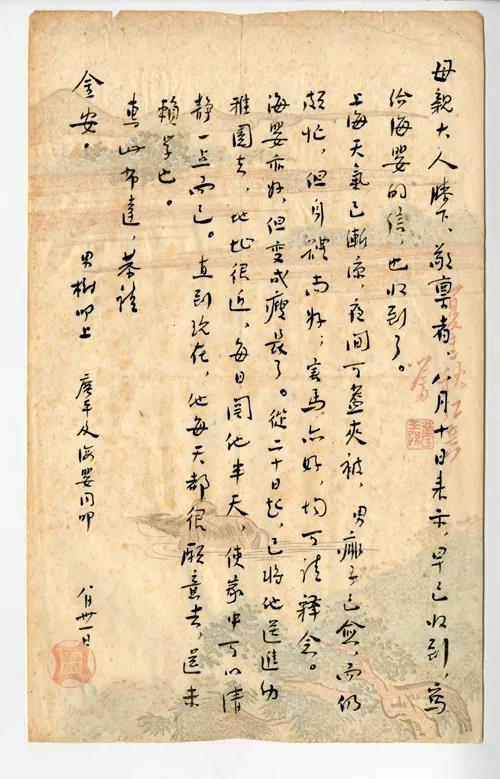 母親大人膝下、敬稟者、八月十日来示，早已收到，寫
给海嬰的信，也收到了。
上海天氣已漸涼，夜间可蓋夾被，男痱子已愈，而仍
頗忙，但身體尚好；害馬亦好，均可請釋念。
海嬰亦好，但变成瘦長了。從二十日起，已將他送進幼
稚園去，地址很近，每日関他半天，使家中可以清
静一点而已。直到現在，他每天都很願意去，還未
賴学也。
專此布達，恭請
金安。
男樹叩上 廣平及海嬰同叩 八月卅一日